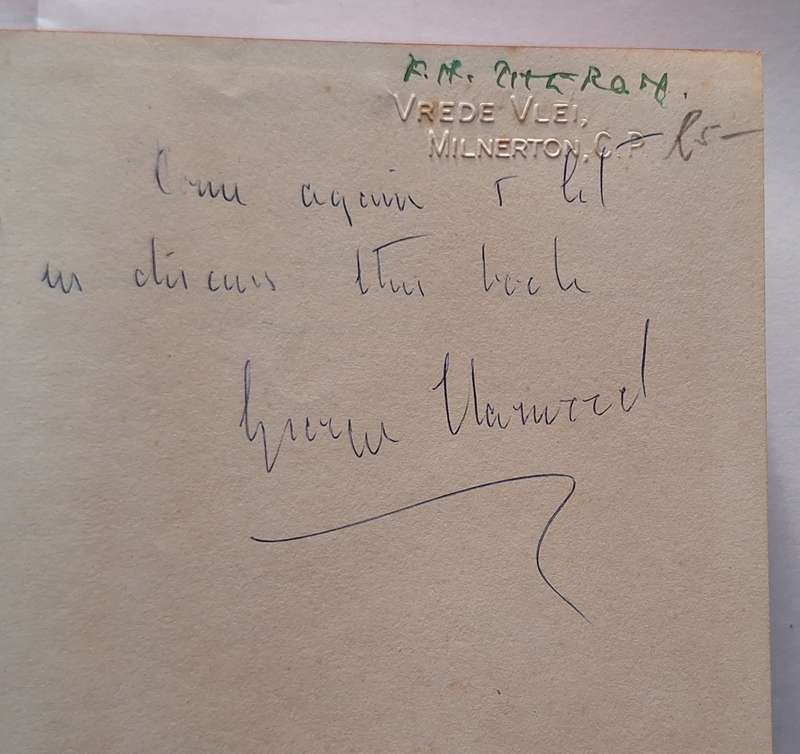 VREDE VLEI,
MILNERTON, C.P. R5-
Come again & let
us discuss this book
George Harwood